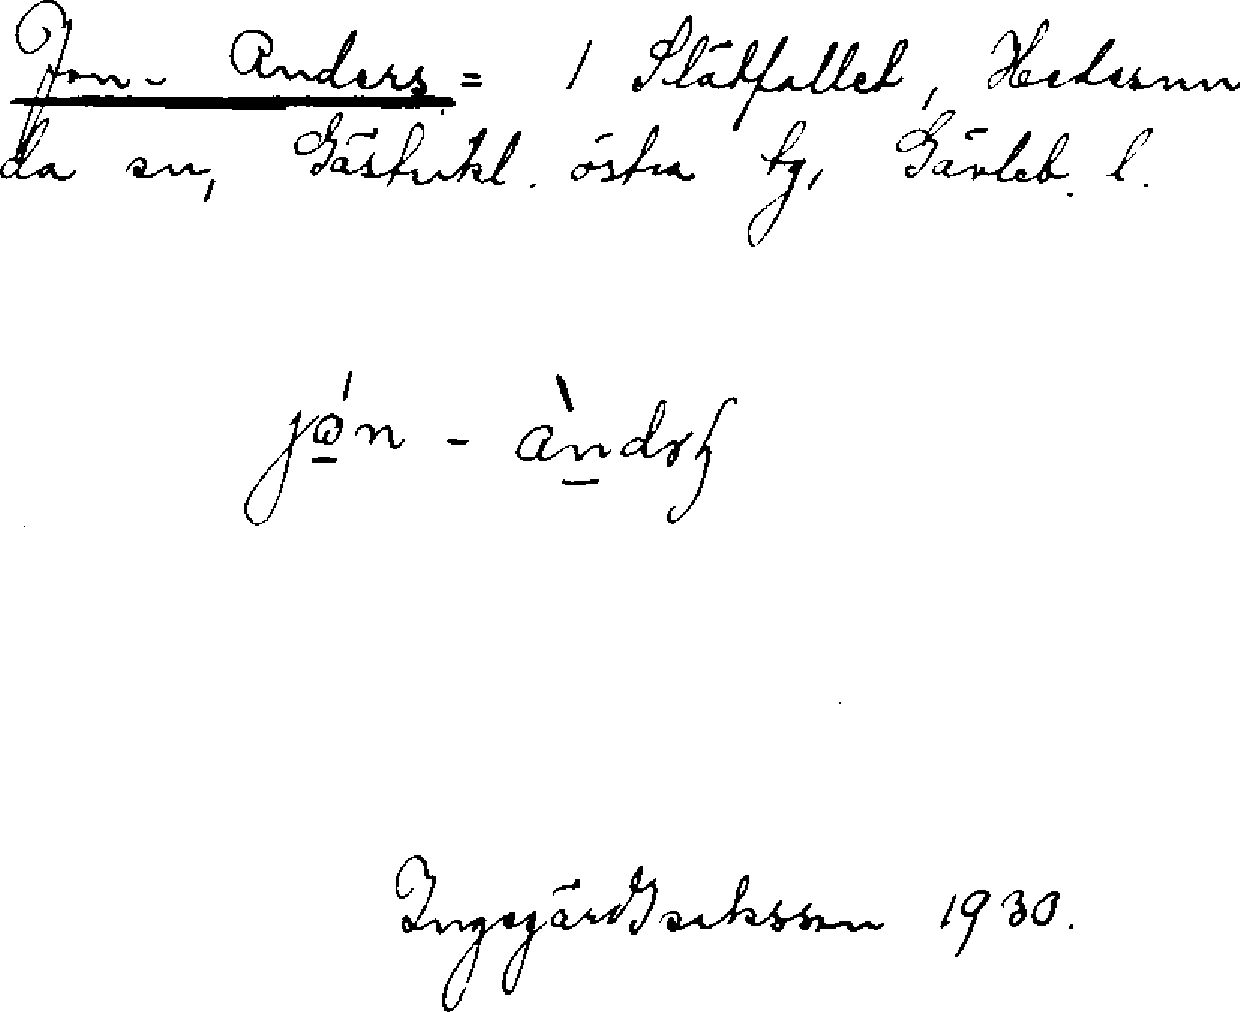 Jon-Anders = 1 Slätfallet, Hedesun
da sn, Gästrikl. östra tg, Gävleb. l.
jo̱n - àndrʂ
Ingegärd Isaksson 1930.